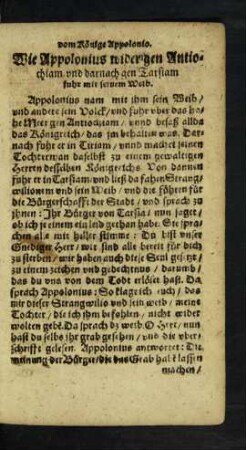 vom Könige Appolonio.
Wie Appolonius wider gen Antio-
chiam vnd darnach gen Tarsiam
fuhr mit seinem Weib.
Appolonius nam mit ihm sein Weib /
vnd andere sein Volck / vnd fuhr vber das ho-
he Meer gen Antiochiam / vnnd besaß allda
das Königreich / das jm behalten was. Dar-
nach fuhr er in Tiriam / vnnd machet seinen
Tochterman daselbst zu einem gewaltigen
Herren desselben Königreichs Von dannen
fuhr er in Tarsiam vnd ließ da fahen Strang-
wilionem vnd sein Weib / vnd die föhren für
die Bürgerschafft der Stadt / vnd sprach zu
jhnen: Ihr Bürger von Tarsia / nun saget /
ob ich je einem ein leid gethan habe. Sie spra-
chen alle mit heller stimme: Du bist vnser
Gnediger Herr / wir sind alle bereit für dich
zu sterben / wir haben auch die Seul gesetzt /
zu einem zeichen vnd gedechtnus / darumb /
das du vns von dem Todt erlöset hast. Da
sprach Appolonius: So klage ich euch / das
mir dieser Strangwilio vnd sein weib / meine
Tochter / die ich jhm befohlen / nicht wider
wolten gebē. Da sprach dz weib. O Herr / nun
hast du selbs jhr grab gesehen / vnd die vber-
schrifft gelesen. Appolonius antwortet: Die
meinung der Bürger / die das Grab habē lassen
machen /